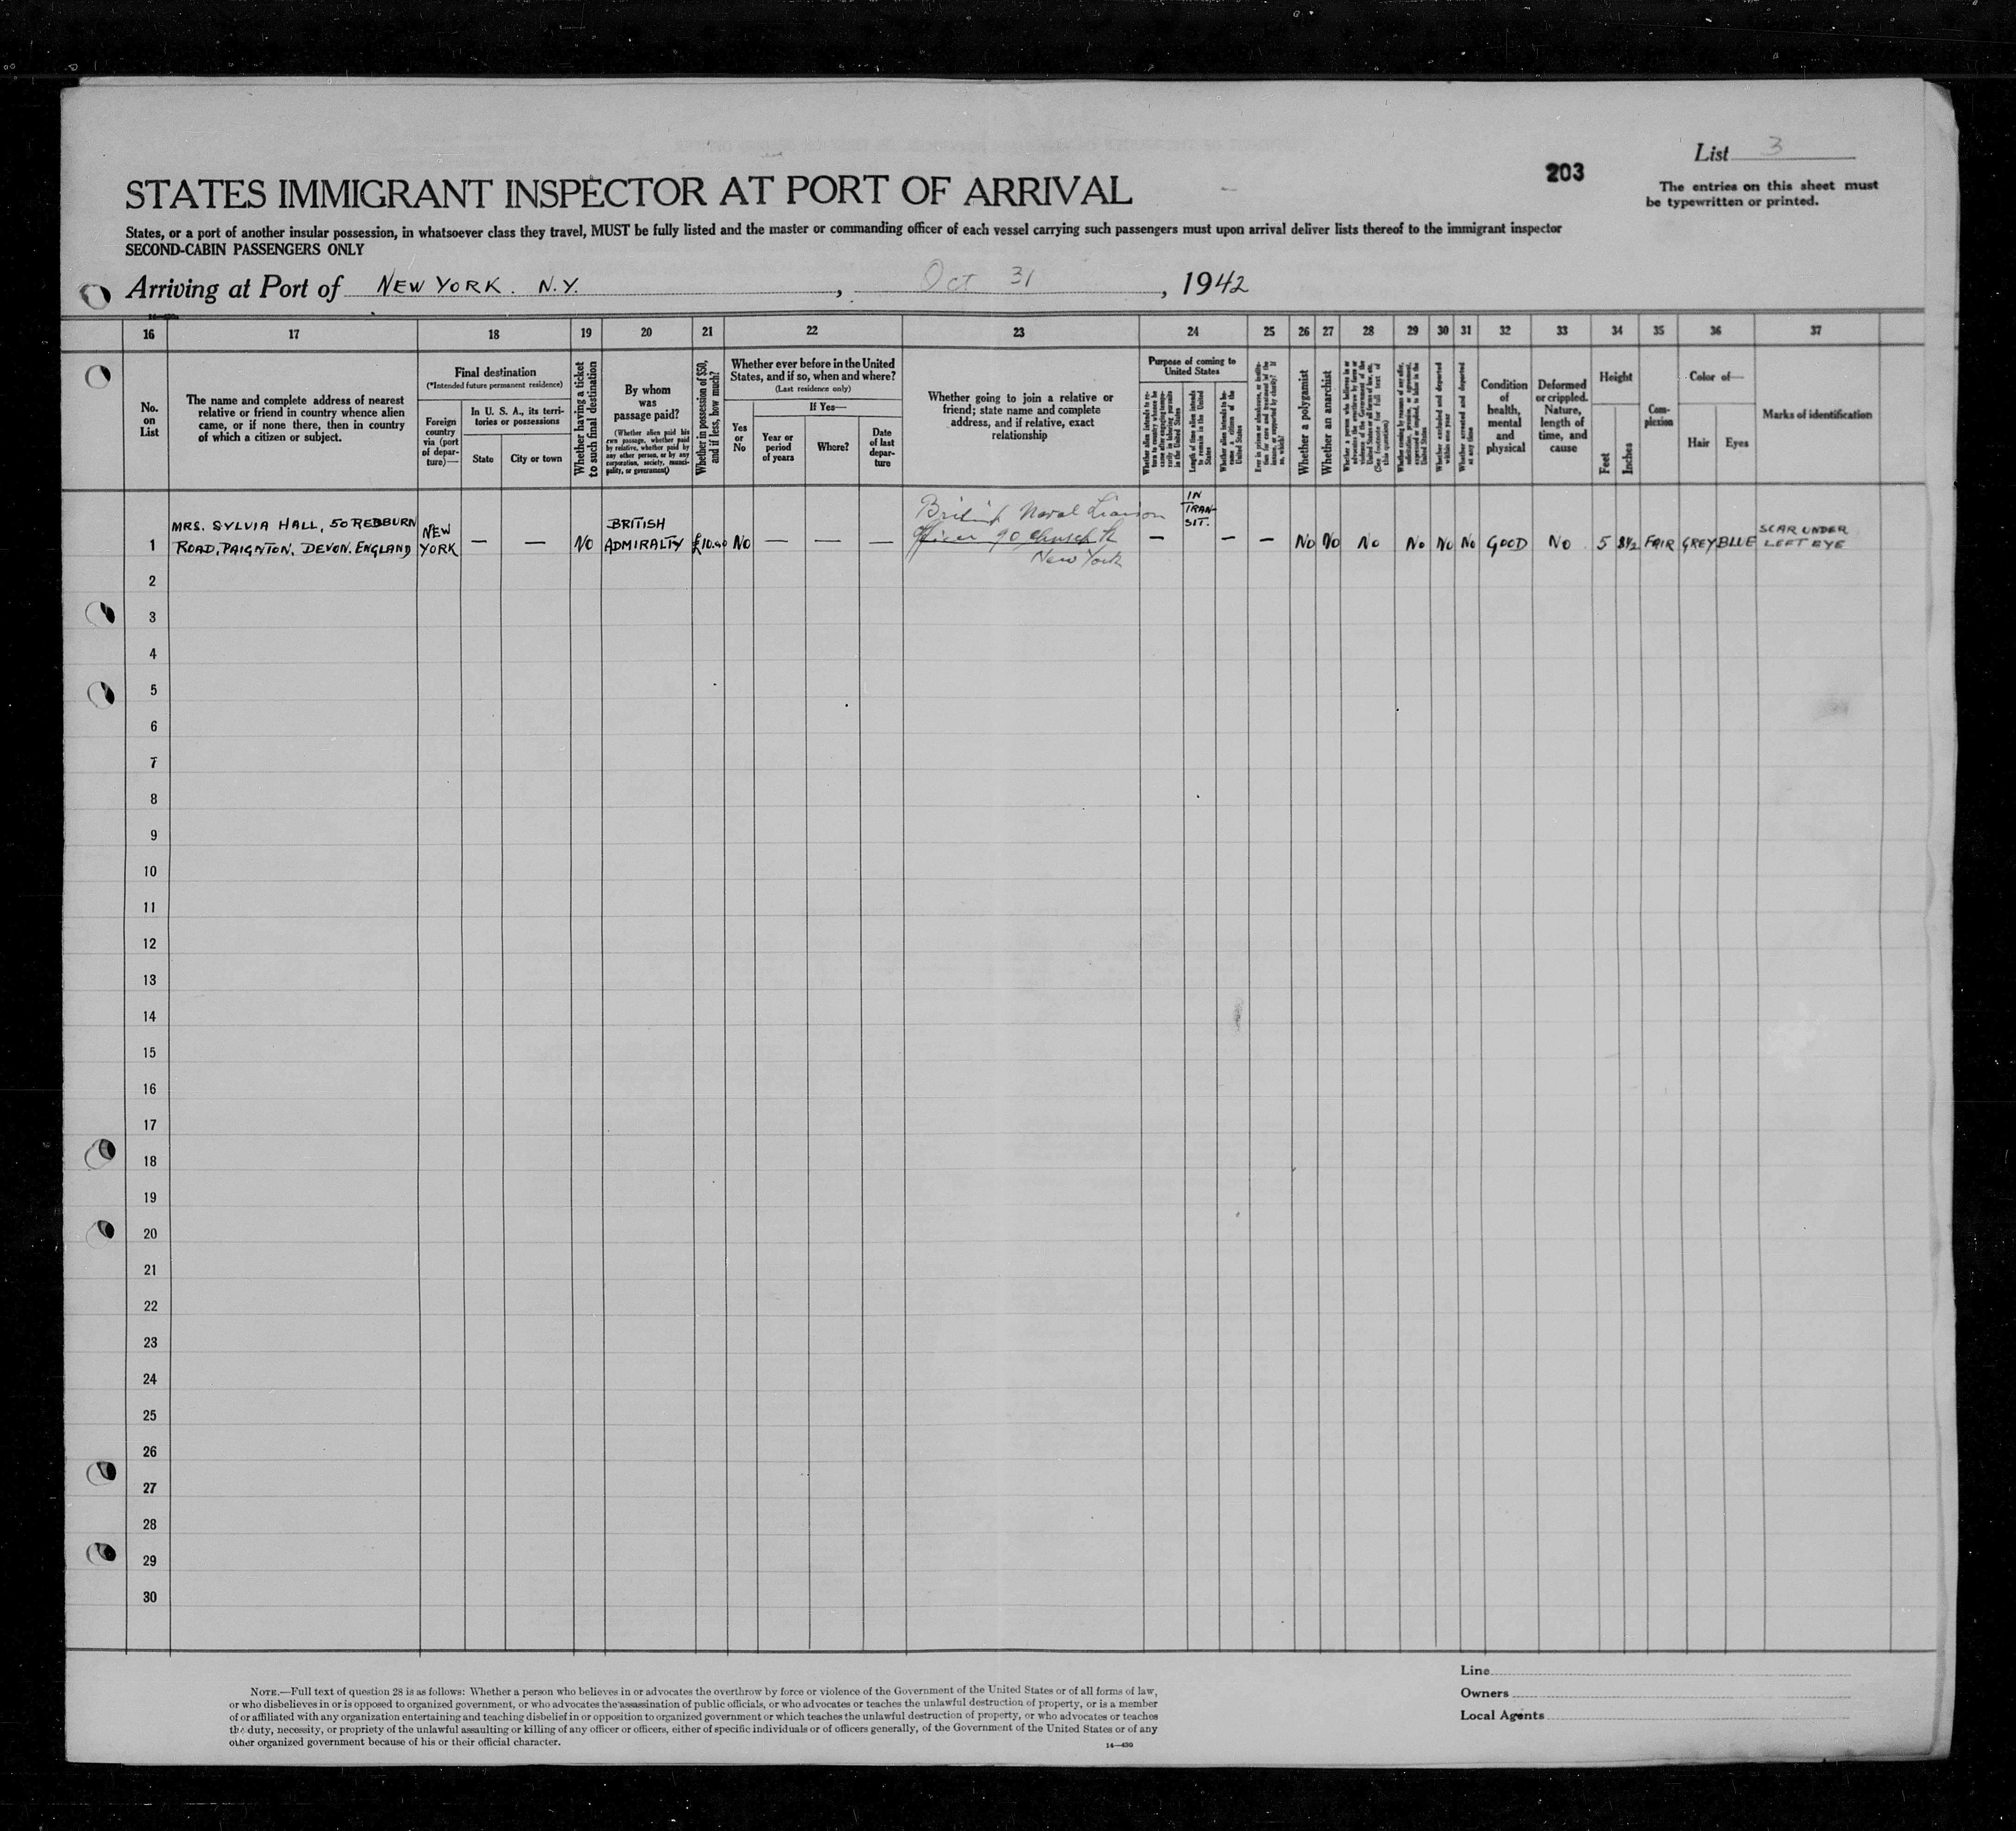 List 3
203
The entries on this sheet must
be typewritten or printed.
STATES IMMIGRANT INSPECTOR AT PORT OF ARRIVAL
States, or a port of another insular possession, in whatsoever class they travel, MUST be fully listed and the master or commanding officer of each vessel carrying such passengers must upon arrival deliver lists thereof to the immigrant inspector
SECOND-CABIN PASSENGERS ONLY
Arriving at Port of NEW YORK. N.Y. , Oct 31 , 1942
16 17 18 19 20 21 22 23 24 25 26 27 28 29 30 31 32 33 34 35 36 37
No.
on
List
The name and complete address of nearest
relative or friend in country whence alien
came, or if none there, then in country
of which a citizen or subject.
Final destination
(*Intended future permanent residence)
Foreign
country
via (port
of depar-
ture)—
In U. S. A., its terri-
tories or possessions
State
City or town
Whether having a ticket
to such final destination
By whom
was
passage paid?
(Whether alien paid his
own passage, whether paid
by relative, whether paid by
any other person, or by any
corporation, society, munici-
pality, or government)
Whether in possession of $50,
and if less, how much?
Whether ever before in the United
States, and if so, when and where?
(Last residence only)
Yes
or
No
If Yes—
Year or
period
of years
Where?
Date
of last
depar-
ture
Whether going to join a relative or
friend; state name and complete
address, and if relative, exact
relationship
Purpose of coming to
United States
Whether alien intends to re-
turn to country whence he
came after engaging tempo-
rarily in laboring pursuits
in the United States
Length of time alien intends
to remain in the United
States
Whether alien intends to be-
come a citizen of the
United States
Whether a polygamist
Whether an anarchist
(See footnote for full text of
this question)
Whether excluded and deported
within one year
Whether arrested and deported
at any time
Condition
of
health,
mental
and
physical
Deformed
or crippled.
Nature,
length of
time, and
cause
Height
Feet
Inches
Com-
plexion
Color of—
Hair
Eyes
Marks of identification
1 MRS. SYLVIA HALL, 50 REDBURN
ROAD, PAIGNTON, DEVON. ENGLAND
NEW
YORK
—
—
NO
BRITISH
ADMIRALTY
£10.00
NO
—
—
—
British Naval Liaison
Officer 90 Church
New York
—
IN
TRAN-
SIT.
—
—
NO
NO
NO
NO
NO
NO
GOOD
NO
5
8½
FAIR
GREY
BLUE
SCAR UNDER
LEFT EYE
2
3
4
5
6
7
8
9
10
11
12
13
14
15
16
17
18
19
20
21
22
23
24
25
26
27
28
29
30
NOTE.—Full text of question 28 is as follows: Whether a person who believes in or advocates the overthrow by force or violence of the Government of the United States or of all forms of law,
or who disbelieves in or is opposed to organized government, or who advocates the assassination of public officials, or who advocates or teaches the unlawful destruction of property, or is a member
of or affiliated with any organization entertaining and teaching disbelief in or opposition to organized government or which teaches the unlawful destruction of property, or who advocates or teaches
the duty, necessity, or propriety of the unlawful assaulting or killing of any officer or officers, either of specific individuals or of officers generally, of the Government of the United States or of any
other organized government because of his or their official character.
14—430
Line
Owners
Local Agents